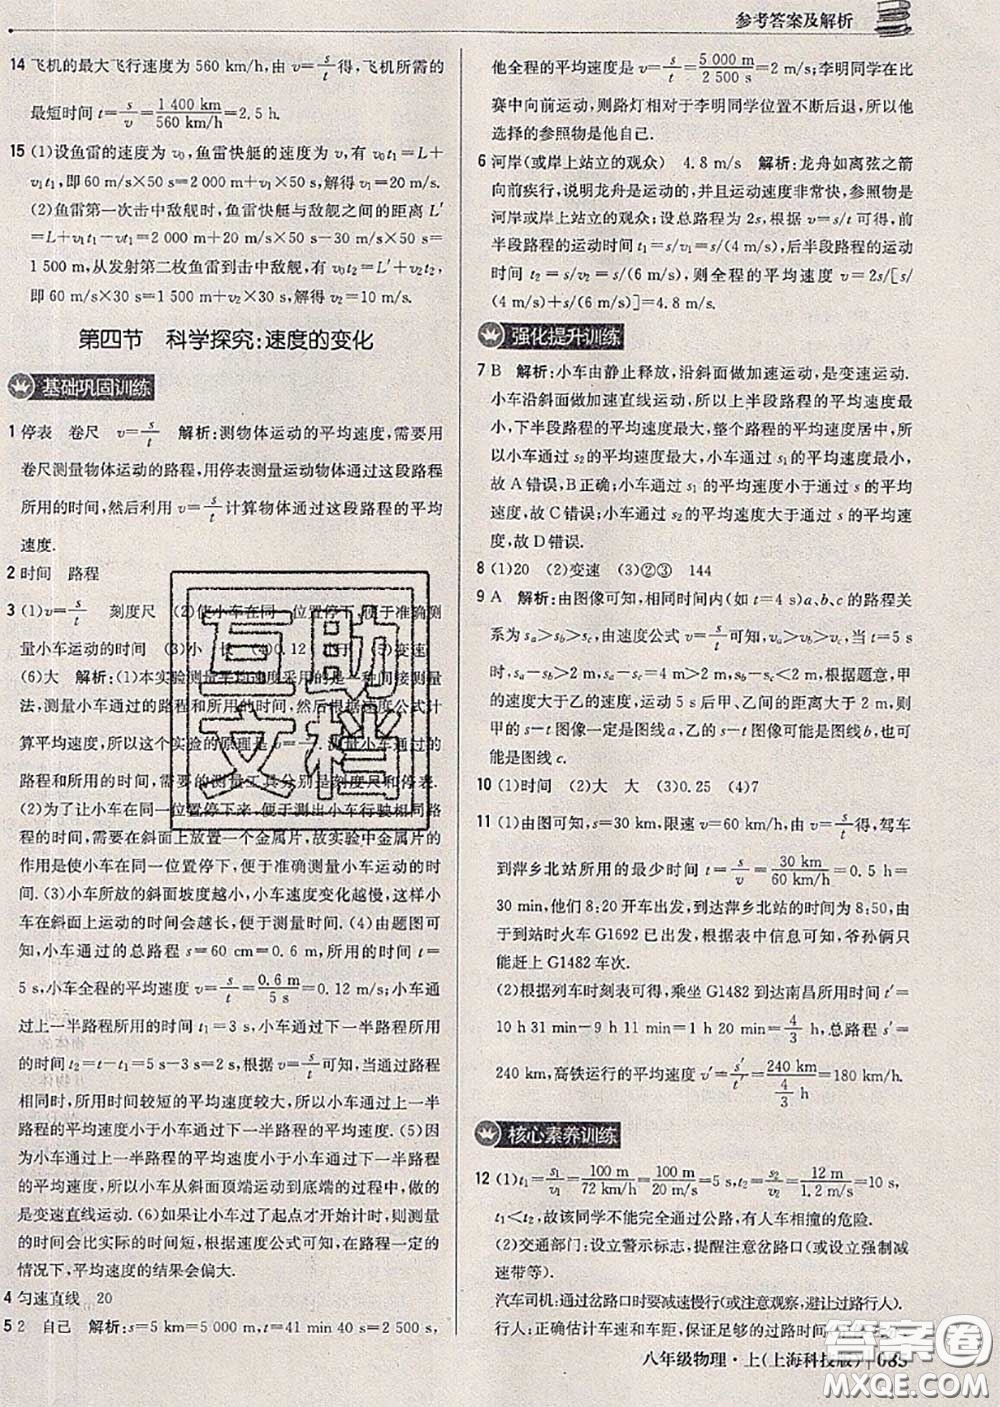 参考答案及解析
14 飞机的最大飞行速度为 560 km/h,由 v=s/t 得,飞机所需的
最短时间 t=s/v=1 400 km/560 km/h=2.5 h.
15 (1)设鱼雷的速度为 v₀,鱼雷快艇与敌舰相向而行,有 v₀t₁=L+
v₁t₁,即 60 m/s×50 s=2 000 m+v₁×50 s,解得 v₁=20 m/s.
(2)鱼雷第一次击中敌舰时,鱼雷快艇与敌舰之间的距离 L′
=L+v₁t₁-vt₁=2 000 m+20 m/s×50 s-30 m/s×50 s=
1 500 m,从发射第二枚鱼雷到击中敌舰,有 v₀t₂=L′+v₂t₂,
即 60 m/s×30 s=1 500 m+v₂×30 s,解得 v₂=10 m/s.
第四节 科学探究:速度的变化
基础巩固训练
1 停表 卷尺 v=s/t 解析:测物体运动的平均速度,需要用
卷尺测量物体运动的路程,用停表测量运动物体通过这段路程
所用的时间,然后利用 v=s/t 计算物体通过这段路程的平均
速度.
2 时间 路程
3 (1)v=s/t 刻度尺 (2)使小车在同一位置停下,便于准确测
量小车运动的时间 (3)小 长 (4)0.12 小于 (5)变速
(6)大 解析:(1)本实验测量平均速度采用的是一种间接测量
法,测量小车通过的路程和所用的时间,然后根据速度公式计
算平均速度,所以这个实验的原理是 v=s/t.测量小车通过的
路程和所用的时间,需要的测量工具分别是刻度尺和停表.
(2)为了让小车在同一位置停下来,便于测出小车行驶相同路
程的时间,需要在斜面上放置一个金属片,故实验中金属片的
作用是使小车在同一位置停下,便于准确测量小车运动的时
间.(3)小车所放的斜面坡度越小,小车速度变化越慢,这样小
车在斜面上运动的时间会越长,便于测量时间.(4)由题图可
知,小车通过的总路程 s=60 cm=0.6 m,所用的时间 t=
5 s,小车全程的平均速度 v=s/t=0.6 m/5 s=0.12 m/s;小车通
过上一半路程所用的时间 t₁=3 s,小车通过下一半路程所用
的时间 t₂=t-t₁=5 s-3 s=2 s,根据 v=s/t 可知,当通过路程
相同时,所用时间较短的平均速度较大,所以小车通过上一半
路程的平均速度小于小车通过下一半路程的平均速度.(5)因
为小车通过上一半路程的平均速度小于小车通过下一半路程
的平均速度,所以小车从斜面顶端运动到底端的过程中,做的
是变速直线运动.(6)如果让小车过了起点才开始计时,则测量
的时间会比实际的时间短,根据速度公式可知,在路程一定的
情况下,平均速度的结果会偏大.
4 匀速直线 20
5 2 自己 解析:s=5 km=5 000 m,t=41 min 40 s=2 500 s,
他全程的平均速度是 v=s/t=5 000 m/2 500 s=2 m/s;李明同学在比
赛中向前运动,则路灯相对于李明同学位置不断后退,所以他
选择的参照物是他自己.
6 河岸(或岸上站立的观众) 4.8 m/s 解析:龙舟如离弦之箭
向前疾行,说明龙舟是运动的,并且运动速度非常快,参照物是
河岸或岸上站立的观众;设总路程为 2s,根据 v=s/t 可得,前
半段路程的运动时间 t₁=s/v₁=s/(4 m/s),后半段路程的运动
时间 t₂=s/v₂=s/(6 m/s),则全程的平均速度 v=2s/[s/
(4 m/s)+s/(6 m/s)]=4.8 m/s.
强化提升训练
7 B 解析:小车由静止释放,沿斜面做加速运动,是变速运动.
小车沿斜面做加速直线运动,所以上半段路程的平均速度最
小,下半段路程的平均速度最大,整个路程的平均速度居中,所
以小车通过 s₂ 的平均速度最大,小车通过 s₁ 的平均速度最小,
故 A 错误,B 正确;小车通过 s₁ 的平均速度小于通过 s 的平均
速度,故 C 错误;小车通过 s₂ 的平均速度大于通过 s 的平均速
度,故 D 错误.
8 (1)20 (2)变速 (3)②③ 144
9 A 解析:由图像可知,相同时间内(如 t=4 s)a、b、c 的路程关
系为 sa>sb>sc,由速度公式 v=s/t 可知,va>vb>vc,当 t=5 s
时,sa-sb>2 m,sa-sc=4 m>2 m,sb-sc<2 m,根据题意,甲
的速度大于乙的速度,运动 5 s 后甲、乙间的距离大于 2 m,则
甲的 s-t 图像一定是图线 a,乙的 s-t 图像可能是图线 b,也可
能是图线 c.
10 (1)时间 (2)大 大 (3)0.25 (4)7
11 (1)由图可知,s=30 km,限速 v=60 km/h,由 v=s/t 得,驾车
到萍乡北站所用的最少时间 t=s/v=30 km/60 km/h=0.5 h=
30 min,他们 8:20 开车出发,到达萍乡北站的时间为 8:50,由
于到站时火车 G1692 已出发,根据表中信息可知,爷孙俩只
能赶上 G1482 车次.
(2)根据列车时刻表可得,乘坐 G1482 到达南昌所用的时间 t′=
10 h 31 min-9 h 11 min=1 h 20 min=4/3 h,总路程 s′=
240 km,高铁运行的平均速度 v′=s′/t′=240 km/(4/3 h)=180 km/h.
核心素养训练
12 (1)t₁=s₁/v₁=100 m/72 km/h=100 m/20 m/s=5 s,t₂=s₂/v₂=12 m/1.2 m/s=10 s,
t₁<t₂,故该同学不能完全通过公路,有人车相撞的危险.
(2)交通部门:设立警示标志,提醒注意岔路口(或设立强制减
速带等).
汽车司机:通过岔路口时要减速慢行(或注意观察,避让过路行人).
行人:正确估计车速和车距,保证足够的过路时间
八年级物理·上(上海科技版) 085
互助
文档
答案圈
MXQE.COM